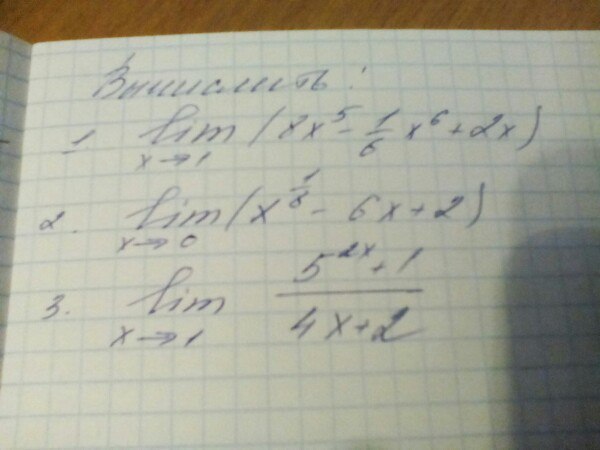 Вычислить:
1. lim x→1 (8x^5 - 1/6 x^6 + 2x)
2. lim x→0 (x^(1/8) - 6x + 2)
3. lim x→1 (5^(2x) + 1)/(4x + 2)